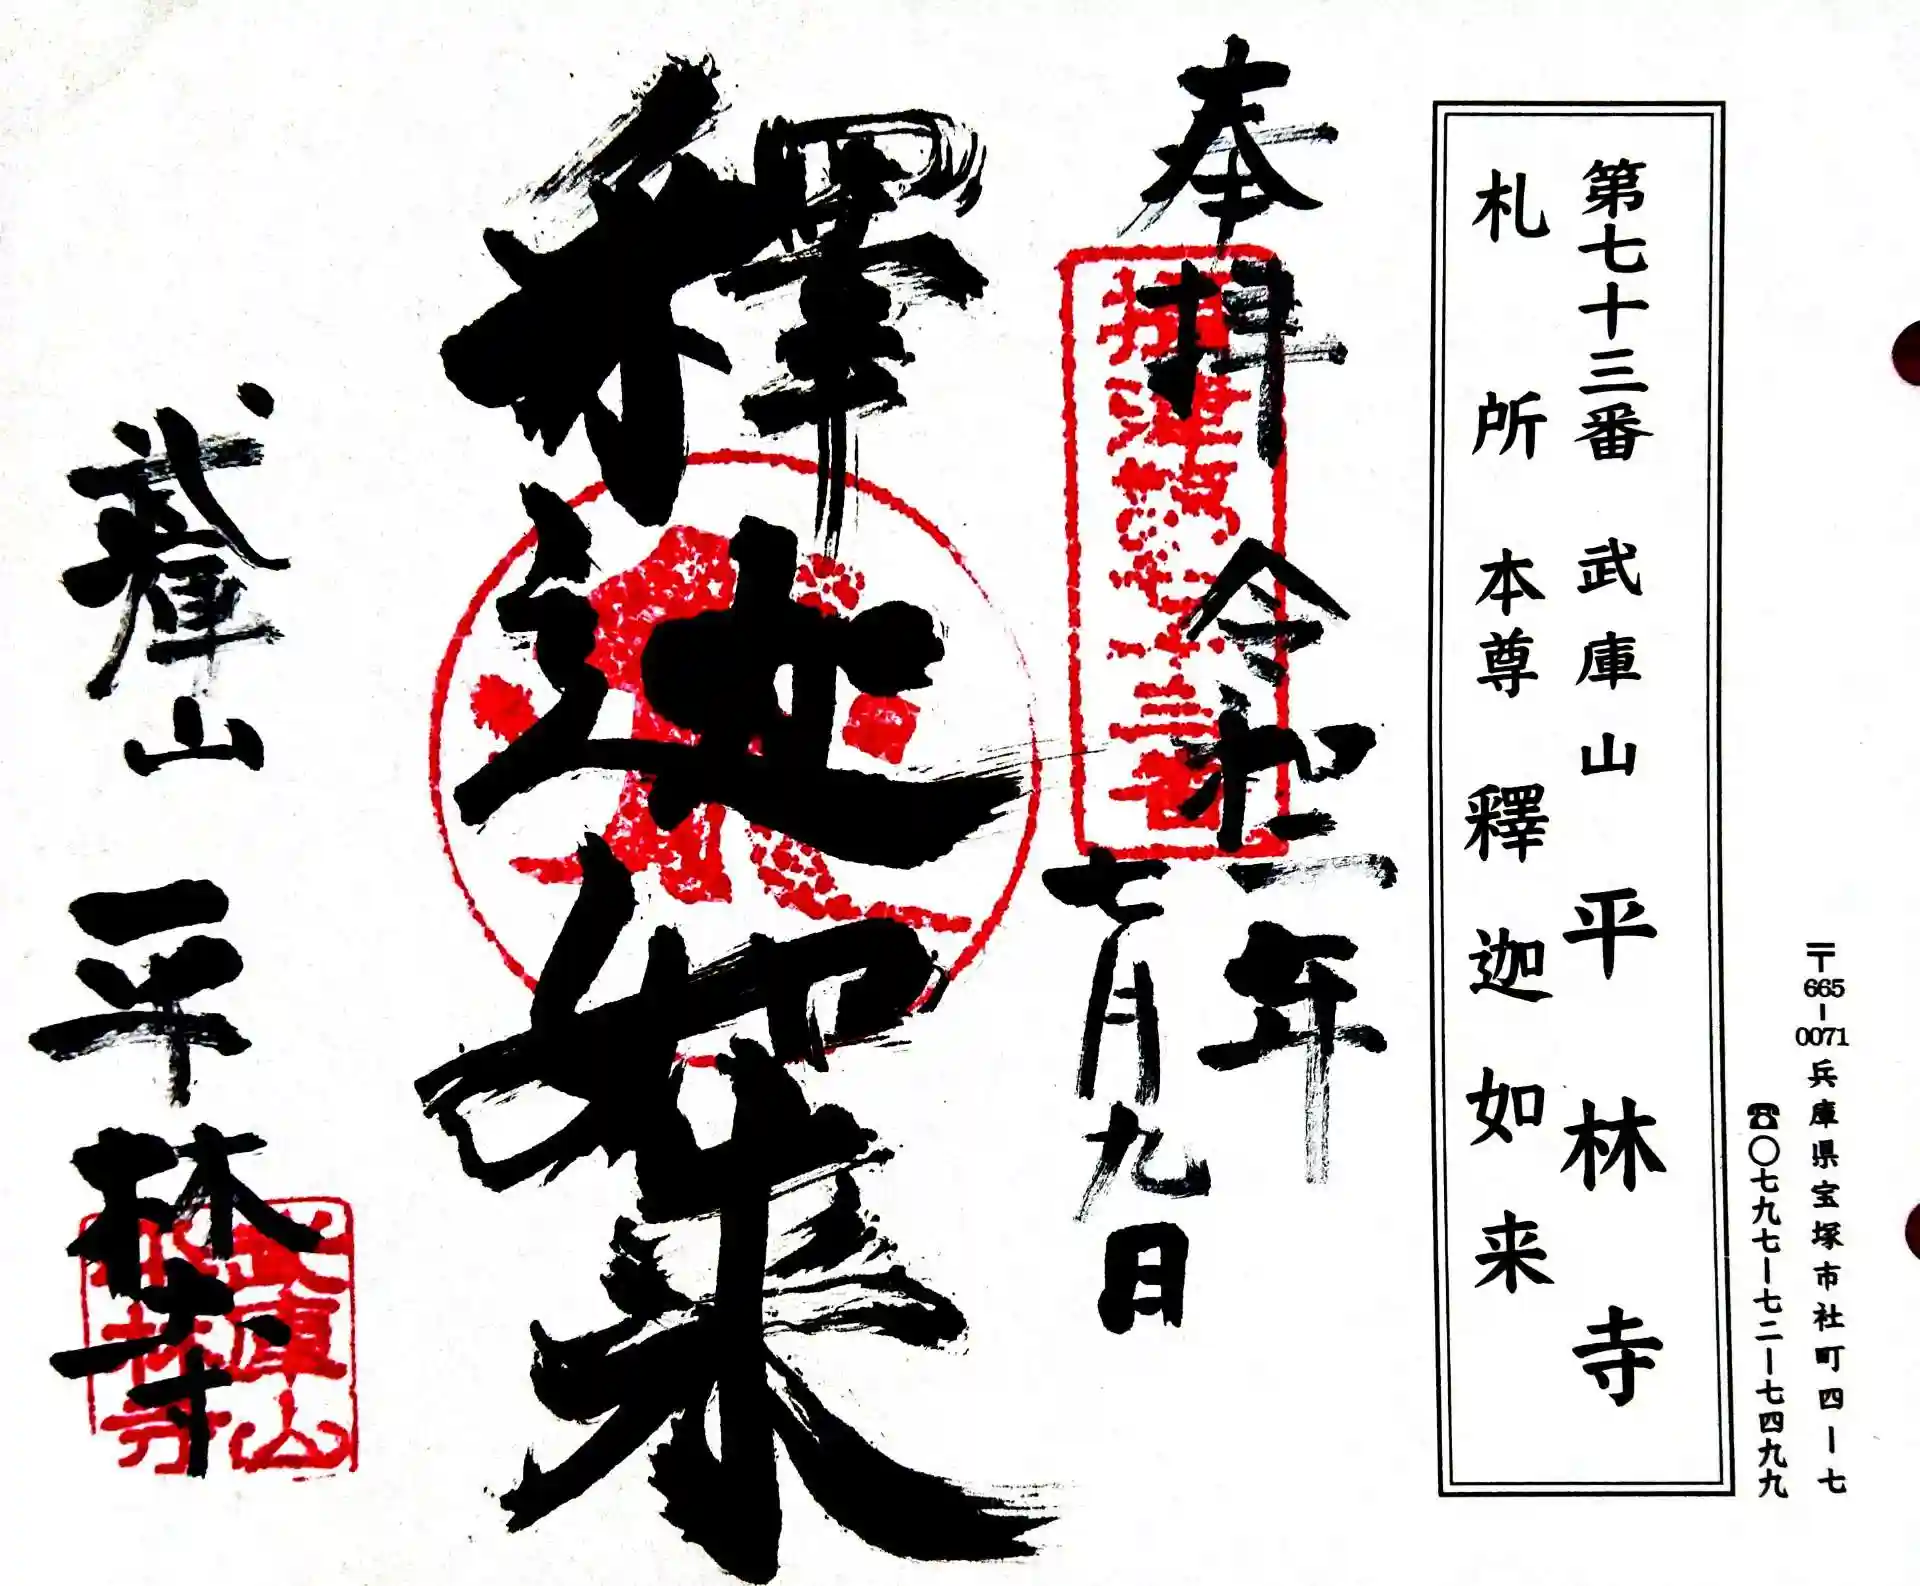 〒665-0071兵庫県宝塚市社町四ー七
☎〇七九七ー七二ー七四九九
第七十三番 武庫山 平林寺
札所本尊 釋迦如来
奉拝 令和二年
七月九日
釋迦如来
武庫山 平林寺
武庫山
平林寺